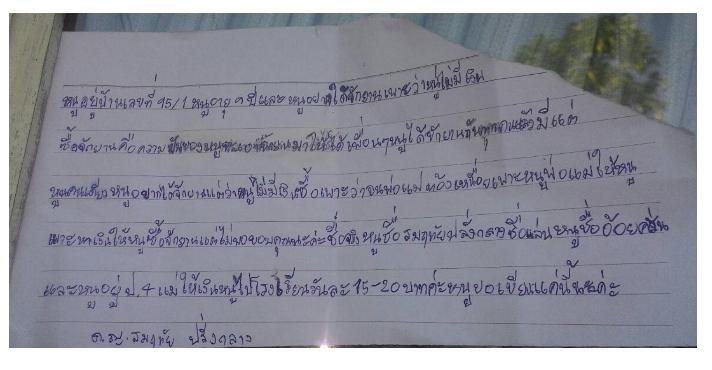 หนูอยู่บ้านเลขที่ 95/1 หนูอายุ ๑ ปีและหนูอยากได้จักยานเพาะว่าหนูไม่มีเงิน
ซื้อจักยานคือความฝันของหนู ได้เพื่อนๆหนูได้จักยานกันทุกคนแล้วมีแต่
หนูคนเดียวหนูอยากได้จักยานแต่ว่าหนูไม่มี ซื้อเพาะว่าจนพ่อแม่ต้องเหนื่อยเพาะหนูพ่อแม่ให้หนู
เพาะหาเงินให้หนูซื้อจักยานแต่ไม่พอขอบคุณนะค่ะชื่อจริงหนูชื่อ ปลั่งกลางชื่อเล่นหนูชื่ออ้อย
และหนูอยู่ ป.4 แม่ให้เงินหนูไปโรงเรียนวันละ 15-20 บาทค่ะหนูขอเขียนแค่นี้นะค่ะ
ด.ญ. ปลั่งกลาง